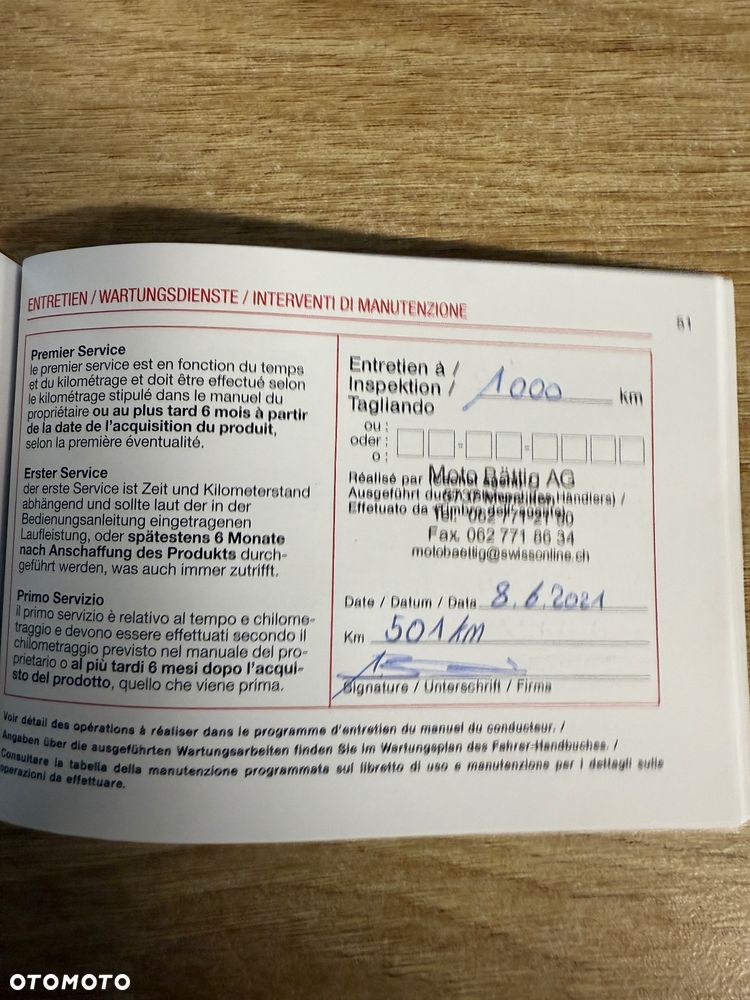 ENTRETIEN / WARTUNGSDIENSTE / INTERVENTI DI MANUTENZIONE
51
Premier Service
le premier service est en fonction du temps
et du kilométrage et doit être effectué selon
le kilométrage stipulé dans le manuel du
propriétaire ou au plus tard 6 mois à partir
de la date de l'acquisition du produit,
selon la première éventualité.
Erster Service
der erste Service ist Zeit und Kilometerstand
abhängend und sollte laut der in der
Bedienungsanleitung eingetragenen
Laufleistung, oder spätestens 6 Monate
nach Anschaffung des Produkts durch-
geführt werden, was auch immer zutrifft.
Primo Servizio
il primo servizio è relativo al tempo e chilome-
traggio e devono essere effettuati secondo il
chilometraggio previsto nel manuale del pro-
prietario o al più tardi 6 mesi dopo l'acqui-
sto del prodotto, quello che viene prima.
Entretien à /
Inspektion / 1000 km
Tagliando
ou :
oder :
o :
Réalisé par
Moto Bättig AG
Ausgeführt Händlers) /
Effetuato da
Tel. 062 771 21 80
Fax. 062 771 86 34
motobaettig@swissonline.ch
Date / Datum / Data 8.6.2021
Km 501 km
Signature / Unterschrift / Firma
Voir détail des opérations à réaliser dans le programme d'entretien du manuel du conducteur. /
Angaben über die ausgeführten Wartungsarbeiten finden Sie im Wartungsplan des Fahrer-Handbuches. /
Consultare la tabella della manutenzione programmata sul libretto di uso e manutenzione per i dettagli sulle
operazioni da effettuare.
OTOMOTO